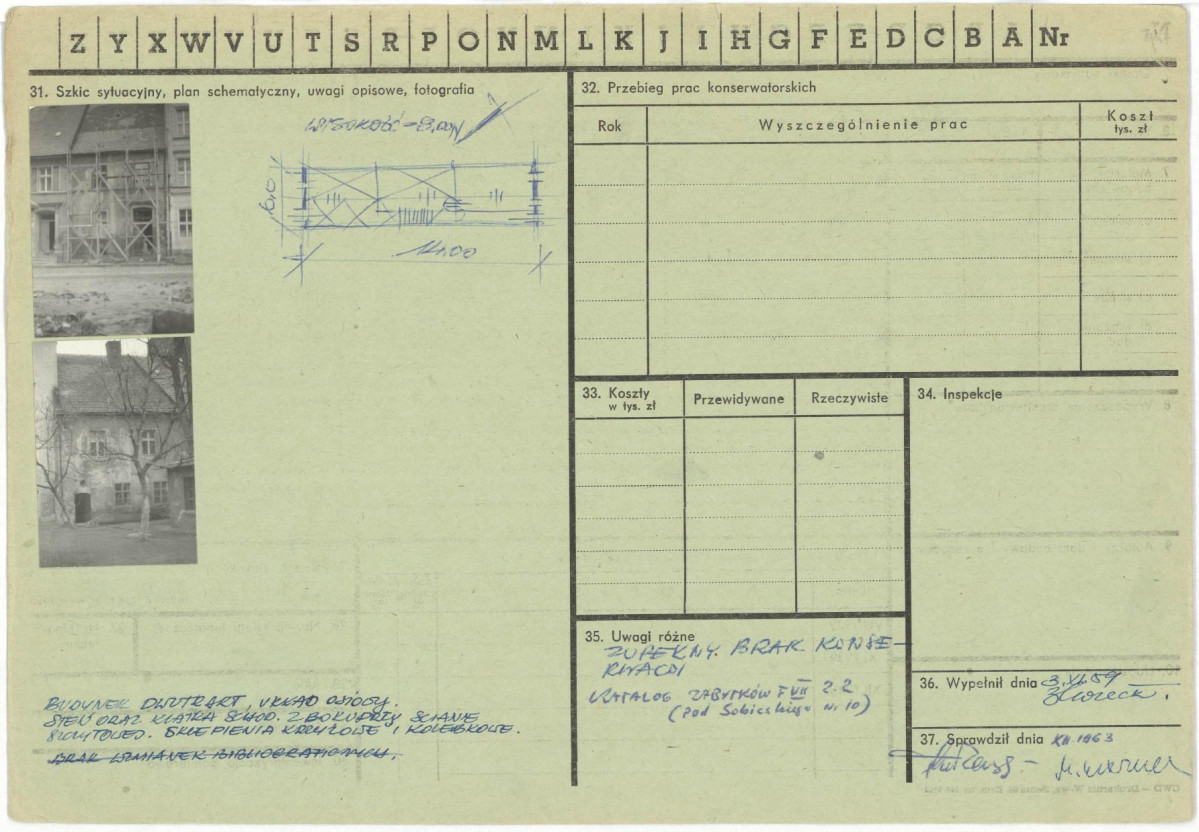 Z Y X W V U T S R P O N M L K J I H G F E D C B A Nr
31. Szkic sytuacyjny, plan schematyczny, uwagi opisowe, fotografia
WYSOKOŚĆ - 8,00
6,0
14.00
BUDYNEK DWUTRAKT, UKŁAD OSIOWY.
SIEŃ ORAZ KLATKA SCHOD. Z BOKU PRZY ŚCIANIE
SZCZYTOWEJ. SKLEPIENIA KRZYŻOWE I KOLEBKOWE.
BRAK WZMIANEK BIBLIOGRAFICZNYCH.
32. Przebieg prac konserwatorskich
Rok
Wyszczególnienie prac
Koszt
tys. zł
33. Koszty
w tys. zł
Przewidywane
Rzeczywiste
34. Inspekcje
35. Uwagi różne
ZUPEŁNY BRAK KONSE-
RWACJI
KATALOG ZABYTKÓW T VII z. 2
(pod Sobieskiego nr 10)
36. Wypełnił dnia 3.XI.59
37. Sprawdził dnia XII.1963